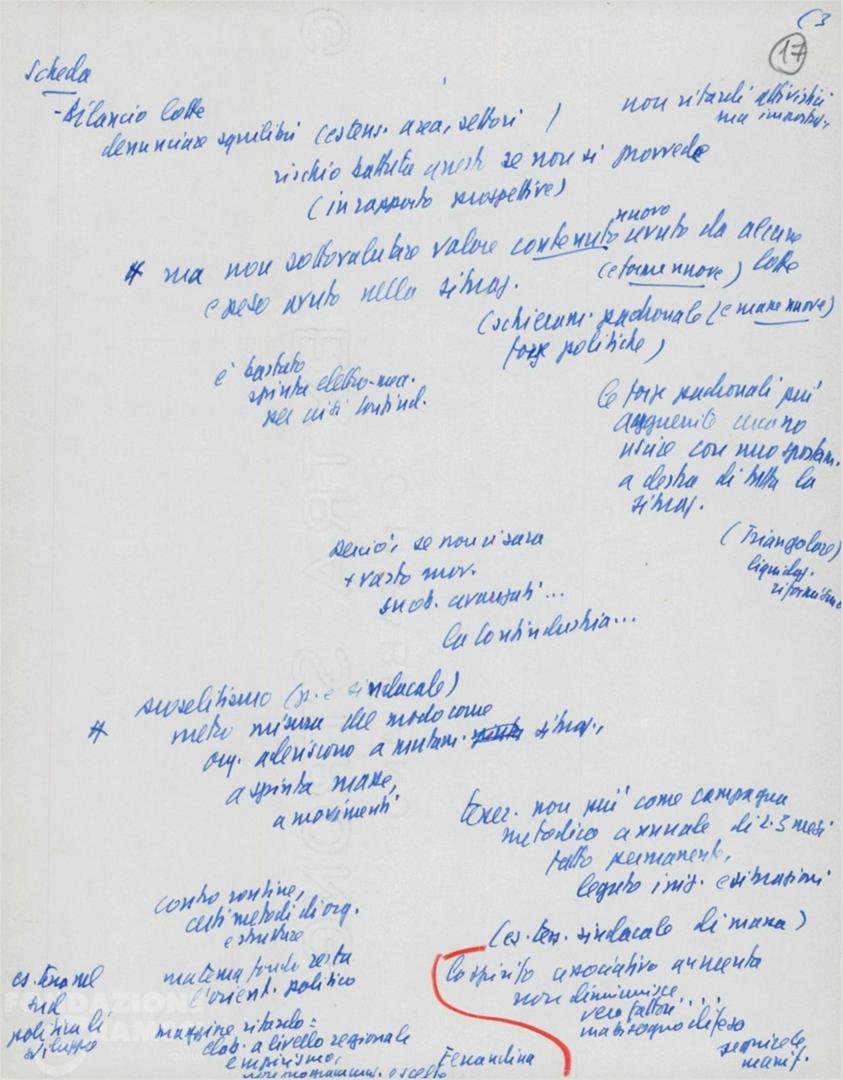 (3
17
Scheda
- Bilancio lotte
non ritardi attivistici
ma impostaz.
denunciare squilibri (estens. area, settori)
rischio battuta arresto se non si provvede
(in rapporto prospettive)
* ma non sottovalutare valore contenuto nuovo avuto da alcune
(e forme nuove) lotte
e peso avuto nella situaz.
(schieram. padronale (e masse nuove)
forze politiche)
è bastato
spinta elettro-mec.
per crisi Confind.
le forze padronali più
agguerrite cercano
uscire con uno spostam.
a destra di tutta la
situaz.
(Triangolare)
liquidaz.
riformismo
perciò, se non ci sarà
+ vasto mov.
su ob. avanzati...
la Confindustria...
* proselitismo (p. e sindacale)
metro misura del modo come
org. aderiscono a mutam. situaz.,
a spinta masse,
a movimenti
tesser. non più come campagna
metodico annuale di 2-3 mesi
fatto permanente,
legato iniz. e situazioni
contro routine,
certi metodi di org.
e strutture
(es. tess. sindacale di massa)
ma tema fondo resta
l'orient. politico
lo spirito associativo aumenta
non diminuisce
vero fattori....
ma bisogno difesa
es. Enna nel
sud
politica di
sviluppo
maggiore ritardo =
elab. a livello regionale
empirismo,
Ferrandina
manif.
FONDAZIONE